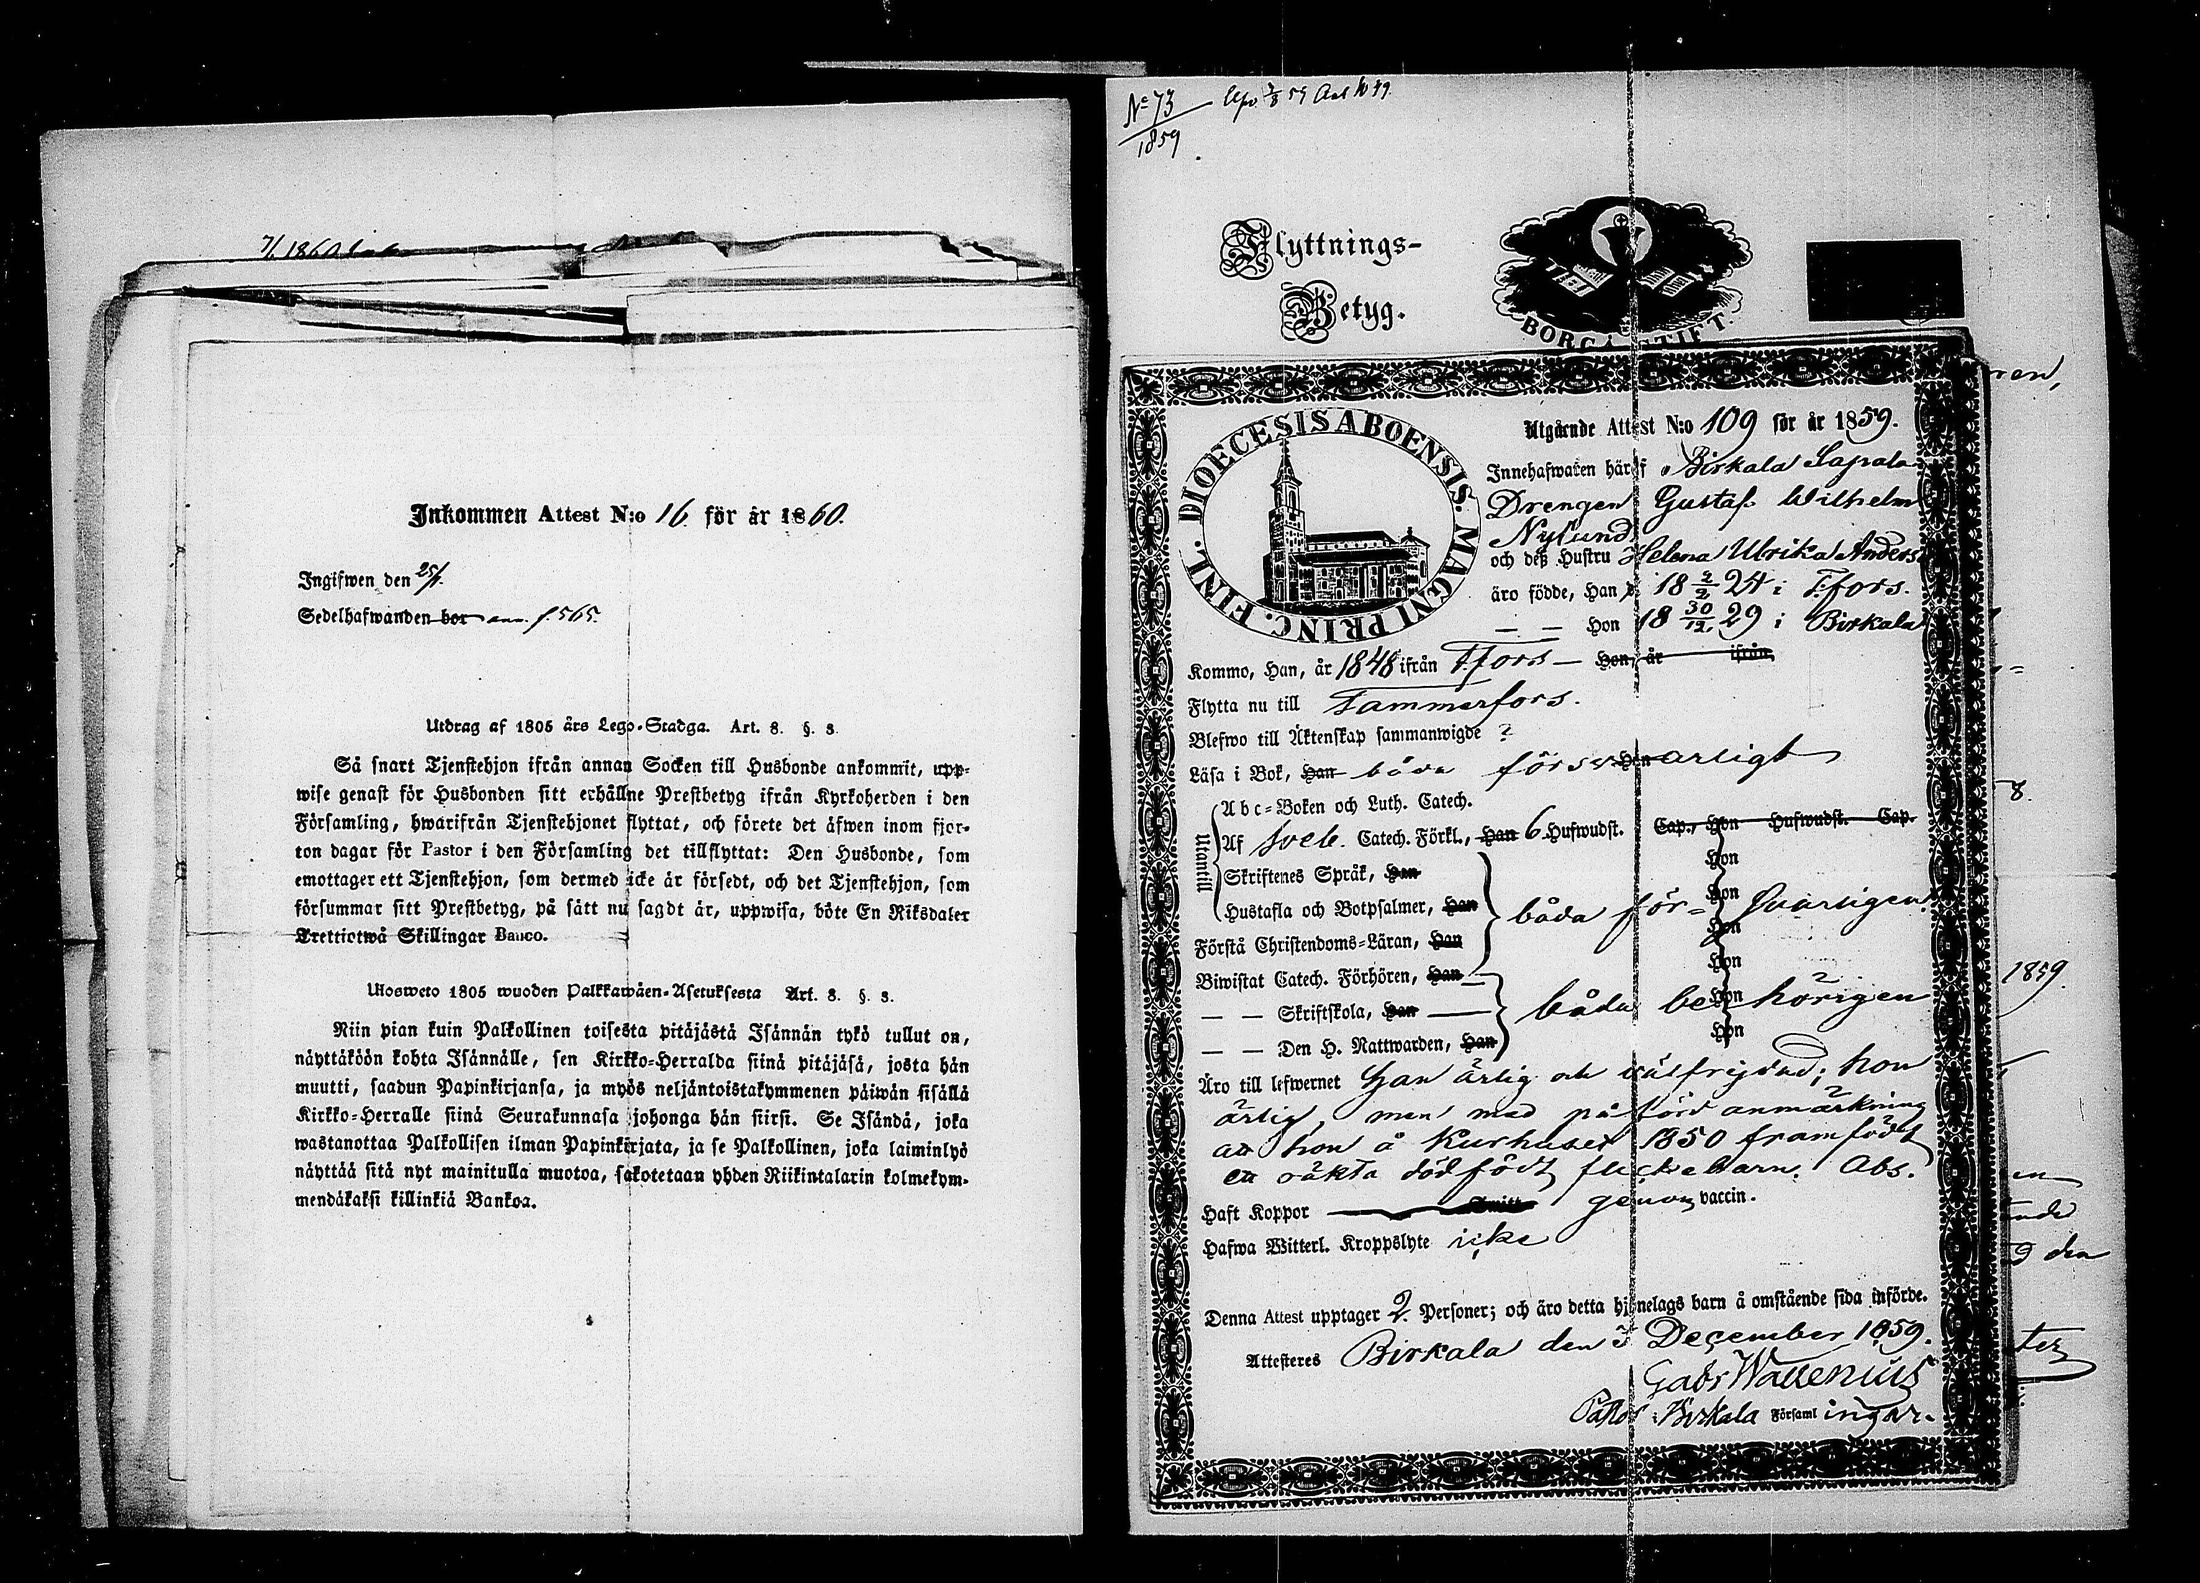 7/1 1860
Inkommen Attest N:o 16 för år 1860.
Ingifwen den 25/1.
Sedelhafwanden bor ann. f. 565.
Utdrag af 1805 års Lego-Stadga. Art. 8. §. 3.
Så snart Tjenstehjon ifrån annan Socken till Husbonde ankommit, upp-
wise genast för Husbonden sitt erhållne Prestbetyg ifrån Kyrkoherden i den
Församling, hwarifrån Tjenstehjonet flyttat, och förete det äfwen inom fjor-
ton dagar för Pastor i den Församling det tillflyttat: Den Husbonde, som
emottager ett Tjenstehjon, som dermed icke är försedt, och det Tjenstehjon, som
försummar sitt Prestbetyg, på sätt nu sagdt är, uppwisa, böte En Riksdaler
Trettiotwå Skillingar Banco.
Ulosweto 1805 wuoden Palkkawäen-Asetuksesta Art. 8. §. 3.
Niin pian kuin Palkollinen toisesta pitäjästä Isännän tykö tullut on,
näyttäköön kohta Isännälle, sen Kirkko-Herralda siinä pitäjäsä, josta hän
muutti, saadun Papinkirjansa, ja myös neljäntoistakymmenen päiwän sisällä
Kirkko-Herralle siinä Seurakunnasa johonga hän siirsi. Se Isändä, joka
wastanottaa Palkollisen ilman Papinkirjata, ja se Palkollinen, joka laiminlyö
näyttää sitä nyt mainitulla muotoa, sakotetaan yhden Riikintalarin kolmekym-
mendäkaksi killinkiä Bankoa.
No 73
1859
Flyttnings-
Betyg.
BORGÅ STIFT.
DIOECESIS ABOENSIS. MAGNI PRINC. FINL.
Utgående Attest N:o 109 för år 1859.
Innehafwaren häraf Birkala Sapala
Drengen Gustaf Wilhelm
Nylund
och deß Hustru Helena Ulrika Anders
äro födde, Han 18 2/2 24 i T:fors.
— — Hon 18 30/12 29 i Birkala
Kommo, Han, år 1848 ifrån T:fors — Hon, år ifrån,
Flytta nu till Tammerfors.
Blefwo till Äktenskap sammanwigde ?
Läsa i Bok, Han båda försvarligt Hon
Utantill
Abc-Boken och Luth. Catech.
Af Sveb. Catech. Förkl., Han 6 Hufwudst. Cap., Hon Hufwudst. Cap.
Skriftenes Språk, Han Hon
Hustafla och Botpsalmer, Han båda för- Hon svarligen
Förstå Christendoms-Läran, Han Hon
Biwistat Catech. Förhören, Han Hon
— — Skriftskola, Han båda be- Hon hörigen
— — Den H. Nattwarden, Han Hon
Äro till lefwernet Han ärlig och välfrejdad; hon
ärlig, men med påförd anmärkning
att hon å Kurhuset 1850 framfödt
en oäkta dödfödt flickebarn. Abs.
Haft Koppor Smitt genom vaccin.
Hafwa Witterl. Kroppslyte icke
Denna Attest upptager 2 Personer; och äro detta hjonelags barn å omstående sida införde.
Attesteres Birkala den 3 December 1859.
Gabr Wallenius
Pastor i Birkala Församlingar.
ren,
8.
1859
en
9 den